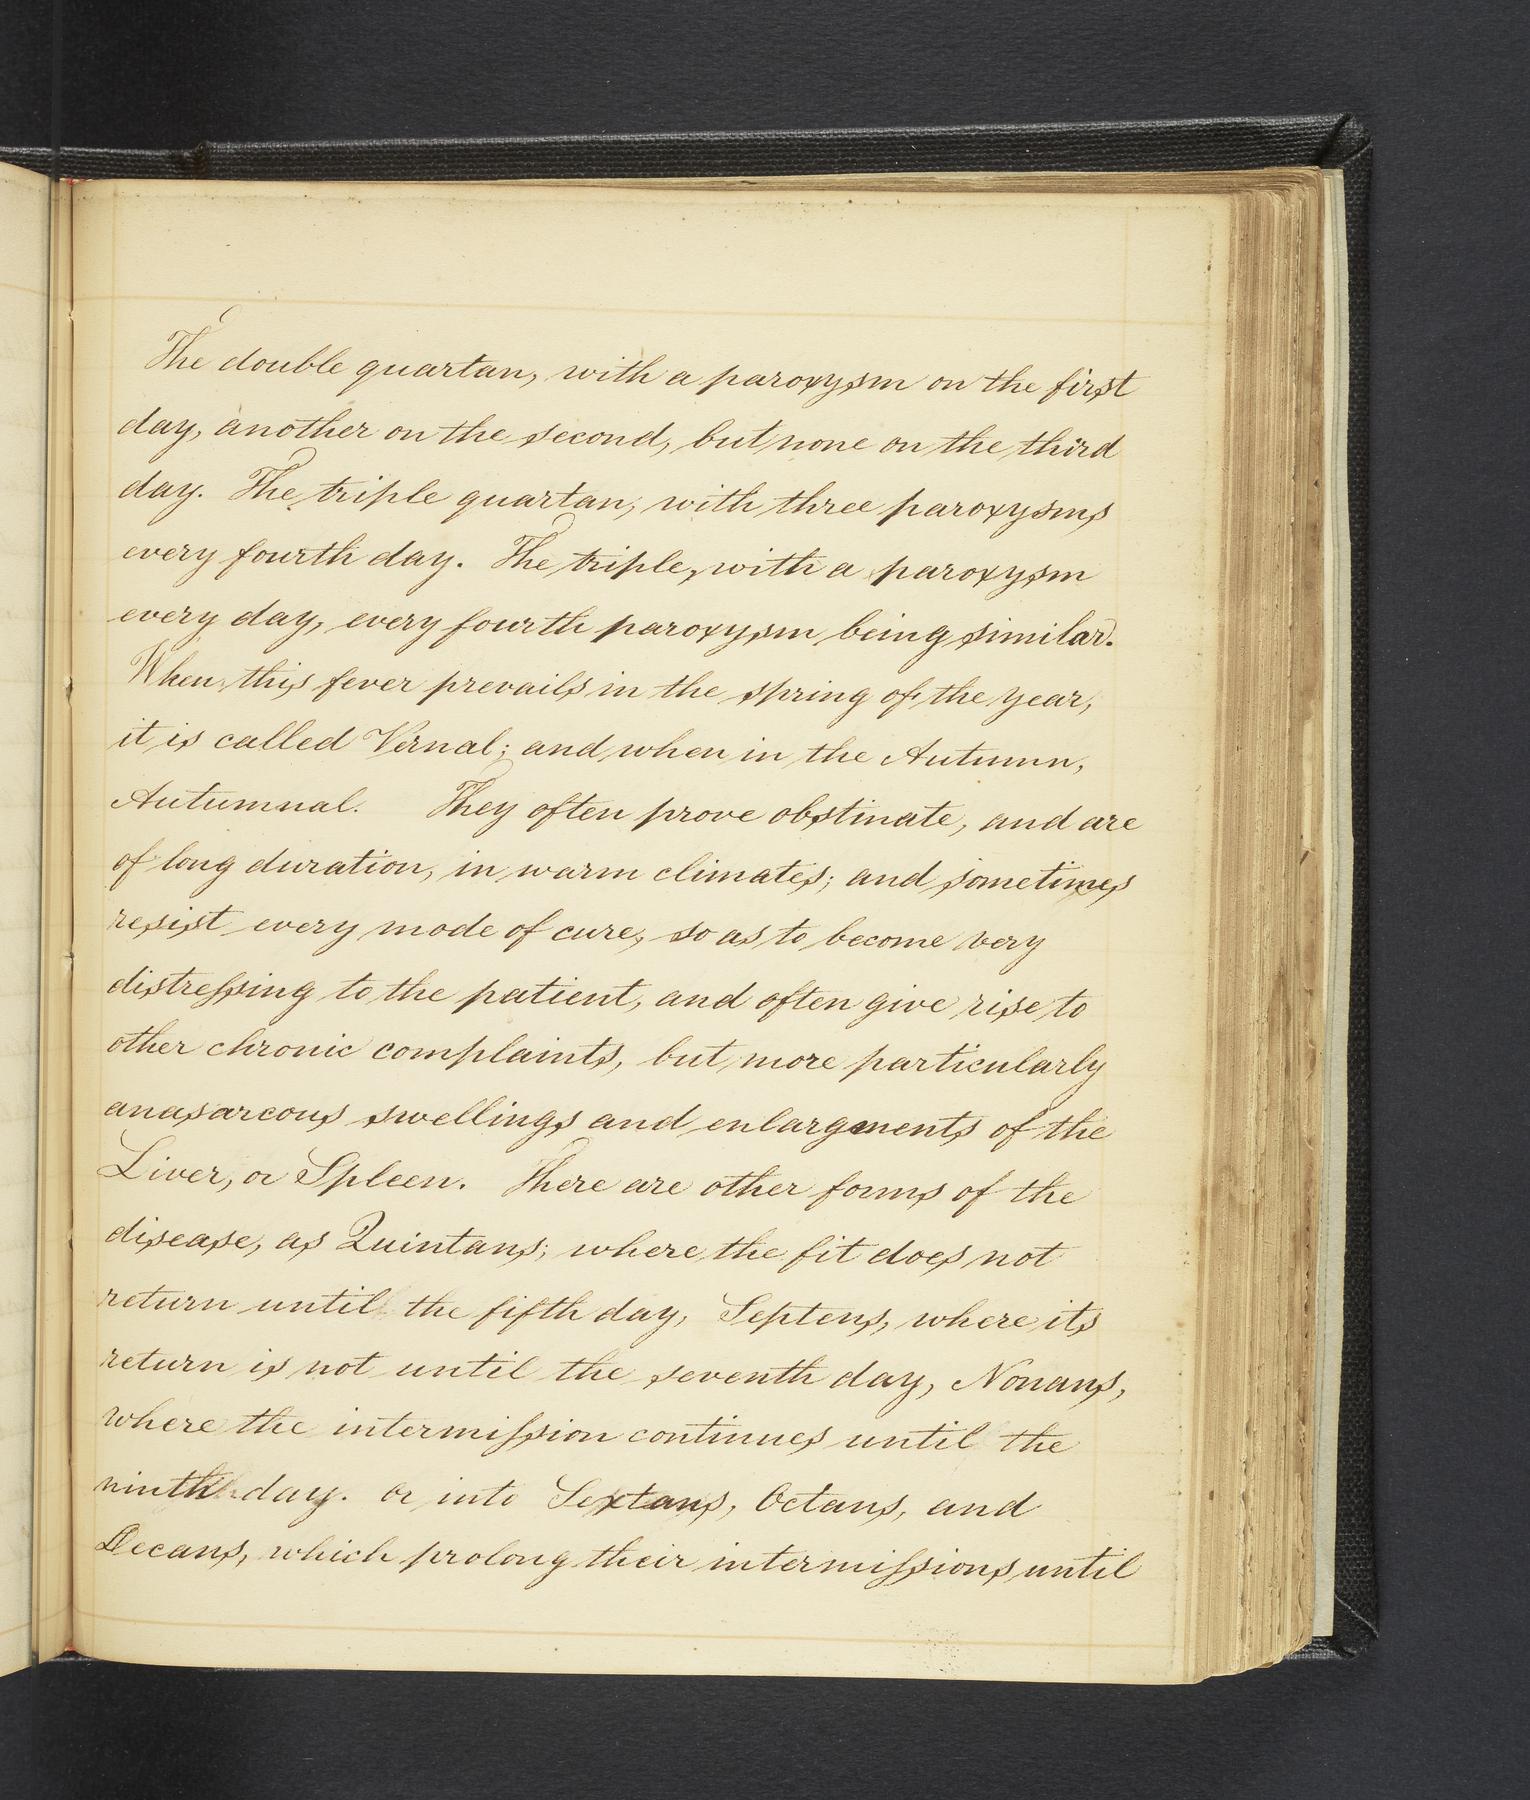 The double quartan, with a paroxysm on the first
day, another on the second, but none on the third
day. The triple quartan, with three paroxysms
every fourth day. The triple, with a paroxysm
every day, every fourth paroxysm being similar.
When this fever prevails in the spring of the year,
it is called Vernal; and when in the Autumn,
Autumnal. They often prove obstinate, and are
of long duration, in warm climates; and sometimes
resist every mode of cure, so as to become very
distressing to the patient, and often give rise to
other chronic complaints, but more particularly
anasarcous swellings and enlargments of the
Liver, or Spleen. There are other forms of the
disease, as Quintans; where the fit does not
return until the fifth day, Septens, where its
return is not until the seventh day, Nonans,
where the intermission continues until the
ninth day. or into Sextans, Octans, and
Decans, which prolong their intermissions until